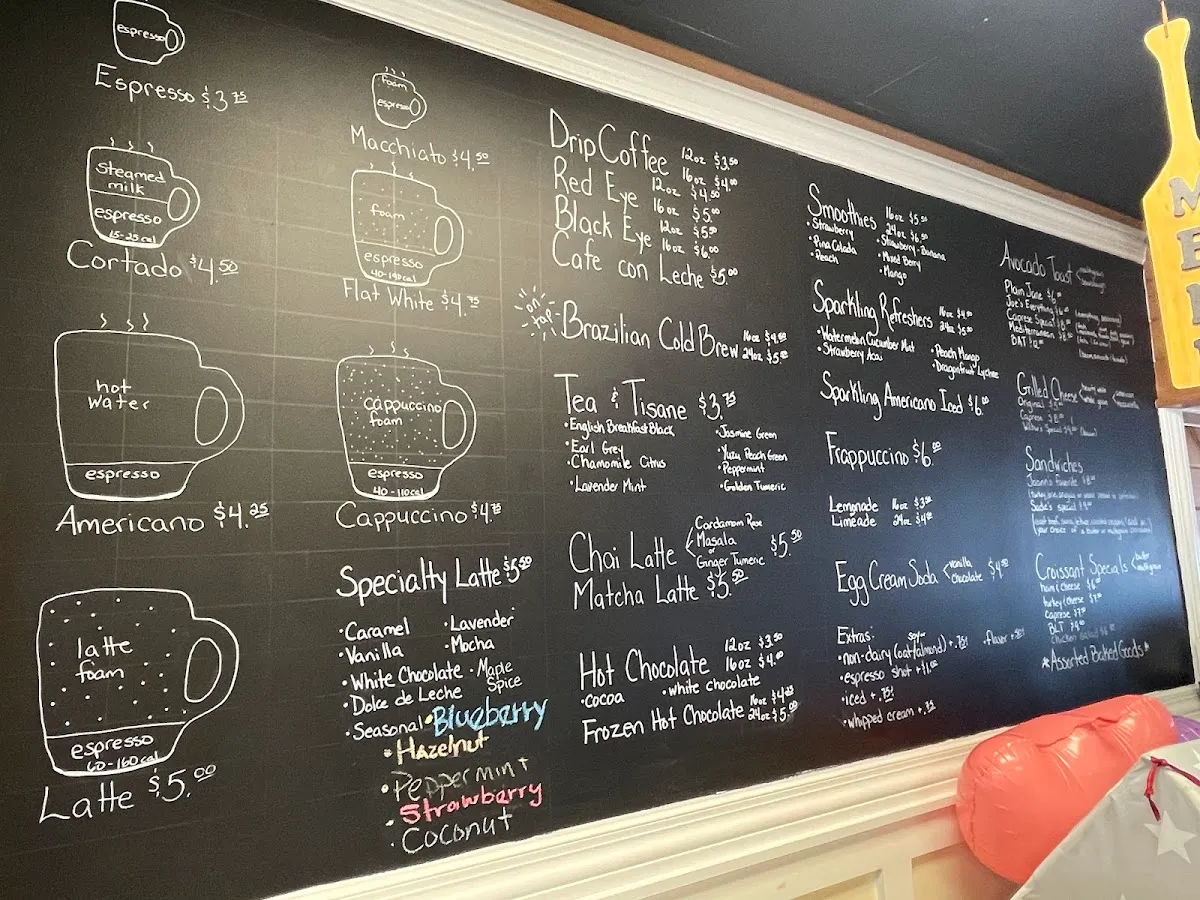 espresso
Espresso $3.75
steamed
milk
espresso
15-25 cal
Cortado $4.50
hot
water
espresso
Americano $4.25
latte
foam
espresso
60-160 cal
Latte $5.00
foam
espresso
Macchiato $4.50
foam
espresso
40-190 cal
Flat White $4.75
cappuccino
foam
espresso
40-110 cal
Cappuccino $4.75
Specialty Latte $5.50
•Caramel •Lavender
•Vanilla •Mocha
•White Chocolate •Maple Spice
•Dolce de Leche
•Seasonal •Blueberry
•Hazelnut
•Peppermint
•Strawberry
•Coconut
Drip Coffee 12oz $3.50
16oz $4.00
Red Eye 12oz $4.50
16oz $5.00
Black Eye 12oz $5.50
16oz $6.00
Cafe con Leche $5.00
on tap
Brazilian Cold Brew 16oz $4.50
24oz $5.50
Tea & Tisane $3.75
•English Breakfast Black •Jasmine Green
•Earl Grey •Yuzu Peach Green
•Chamomile Citrus •Peppermint
•Lavender Mint •Golden Turmeric
Chai Latte Cardamom Rose
Masala
or
Ginger Turmeric $5.50
Matcha Latte $5.50
Hot Chocolate 12oz $3.50
16oz $4.00
•cocoa •white chocolate
Frozen Hot Chocolate 16oz $4.25
24oz $5.00
Smoothies 16oz $5.50
24oz $6.50
•Strawberry •Strawberry-Banana
•Pina Colada •Mixed Berry
•Peach •Mango
Sparkling Refreshers 16oz $4.00
24oz $5.00
•Watermelon Cucumber Mint •Peach Mango
•Strawberry Acai •Dragonfruit Lychee
Sparkling Americano Iced $6.00
Frappuccino $6.00
Lemonade 16oz $3.50
Limeade 24oz $4.50
Egg Cream Soda vanilla
chocolate $4.50
Extras: soy
•non-dairy (oat/almond) +.75¢ •flavor
•espresso shot +$1.00
•iced +.75¢
•whipped cream
Avocado Toast
Plain Jane
Joe's Everything
Caprese Special
Mediterranean
BAT
Grilled Cheese
Original
Caprese
Sandwiches
Joann's Favorite
Sude's Special
Croissant Specials butter
ham/cheese
turkey/cheese
Caprese
BLT
Chicken Salad
*Assorted Baked Goods*
M
E
N